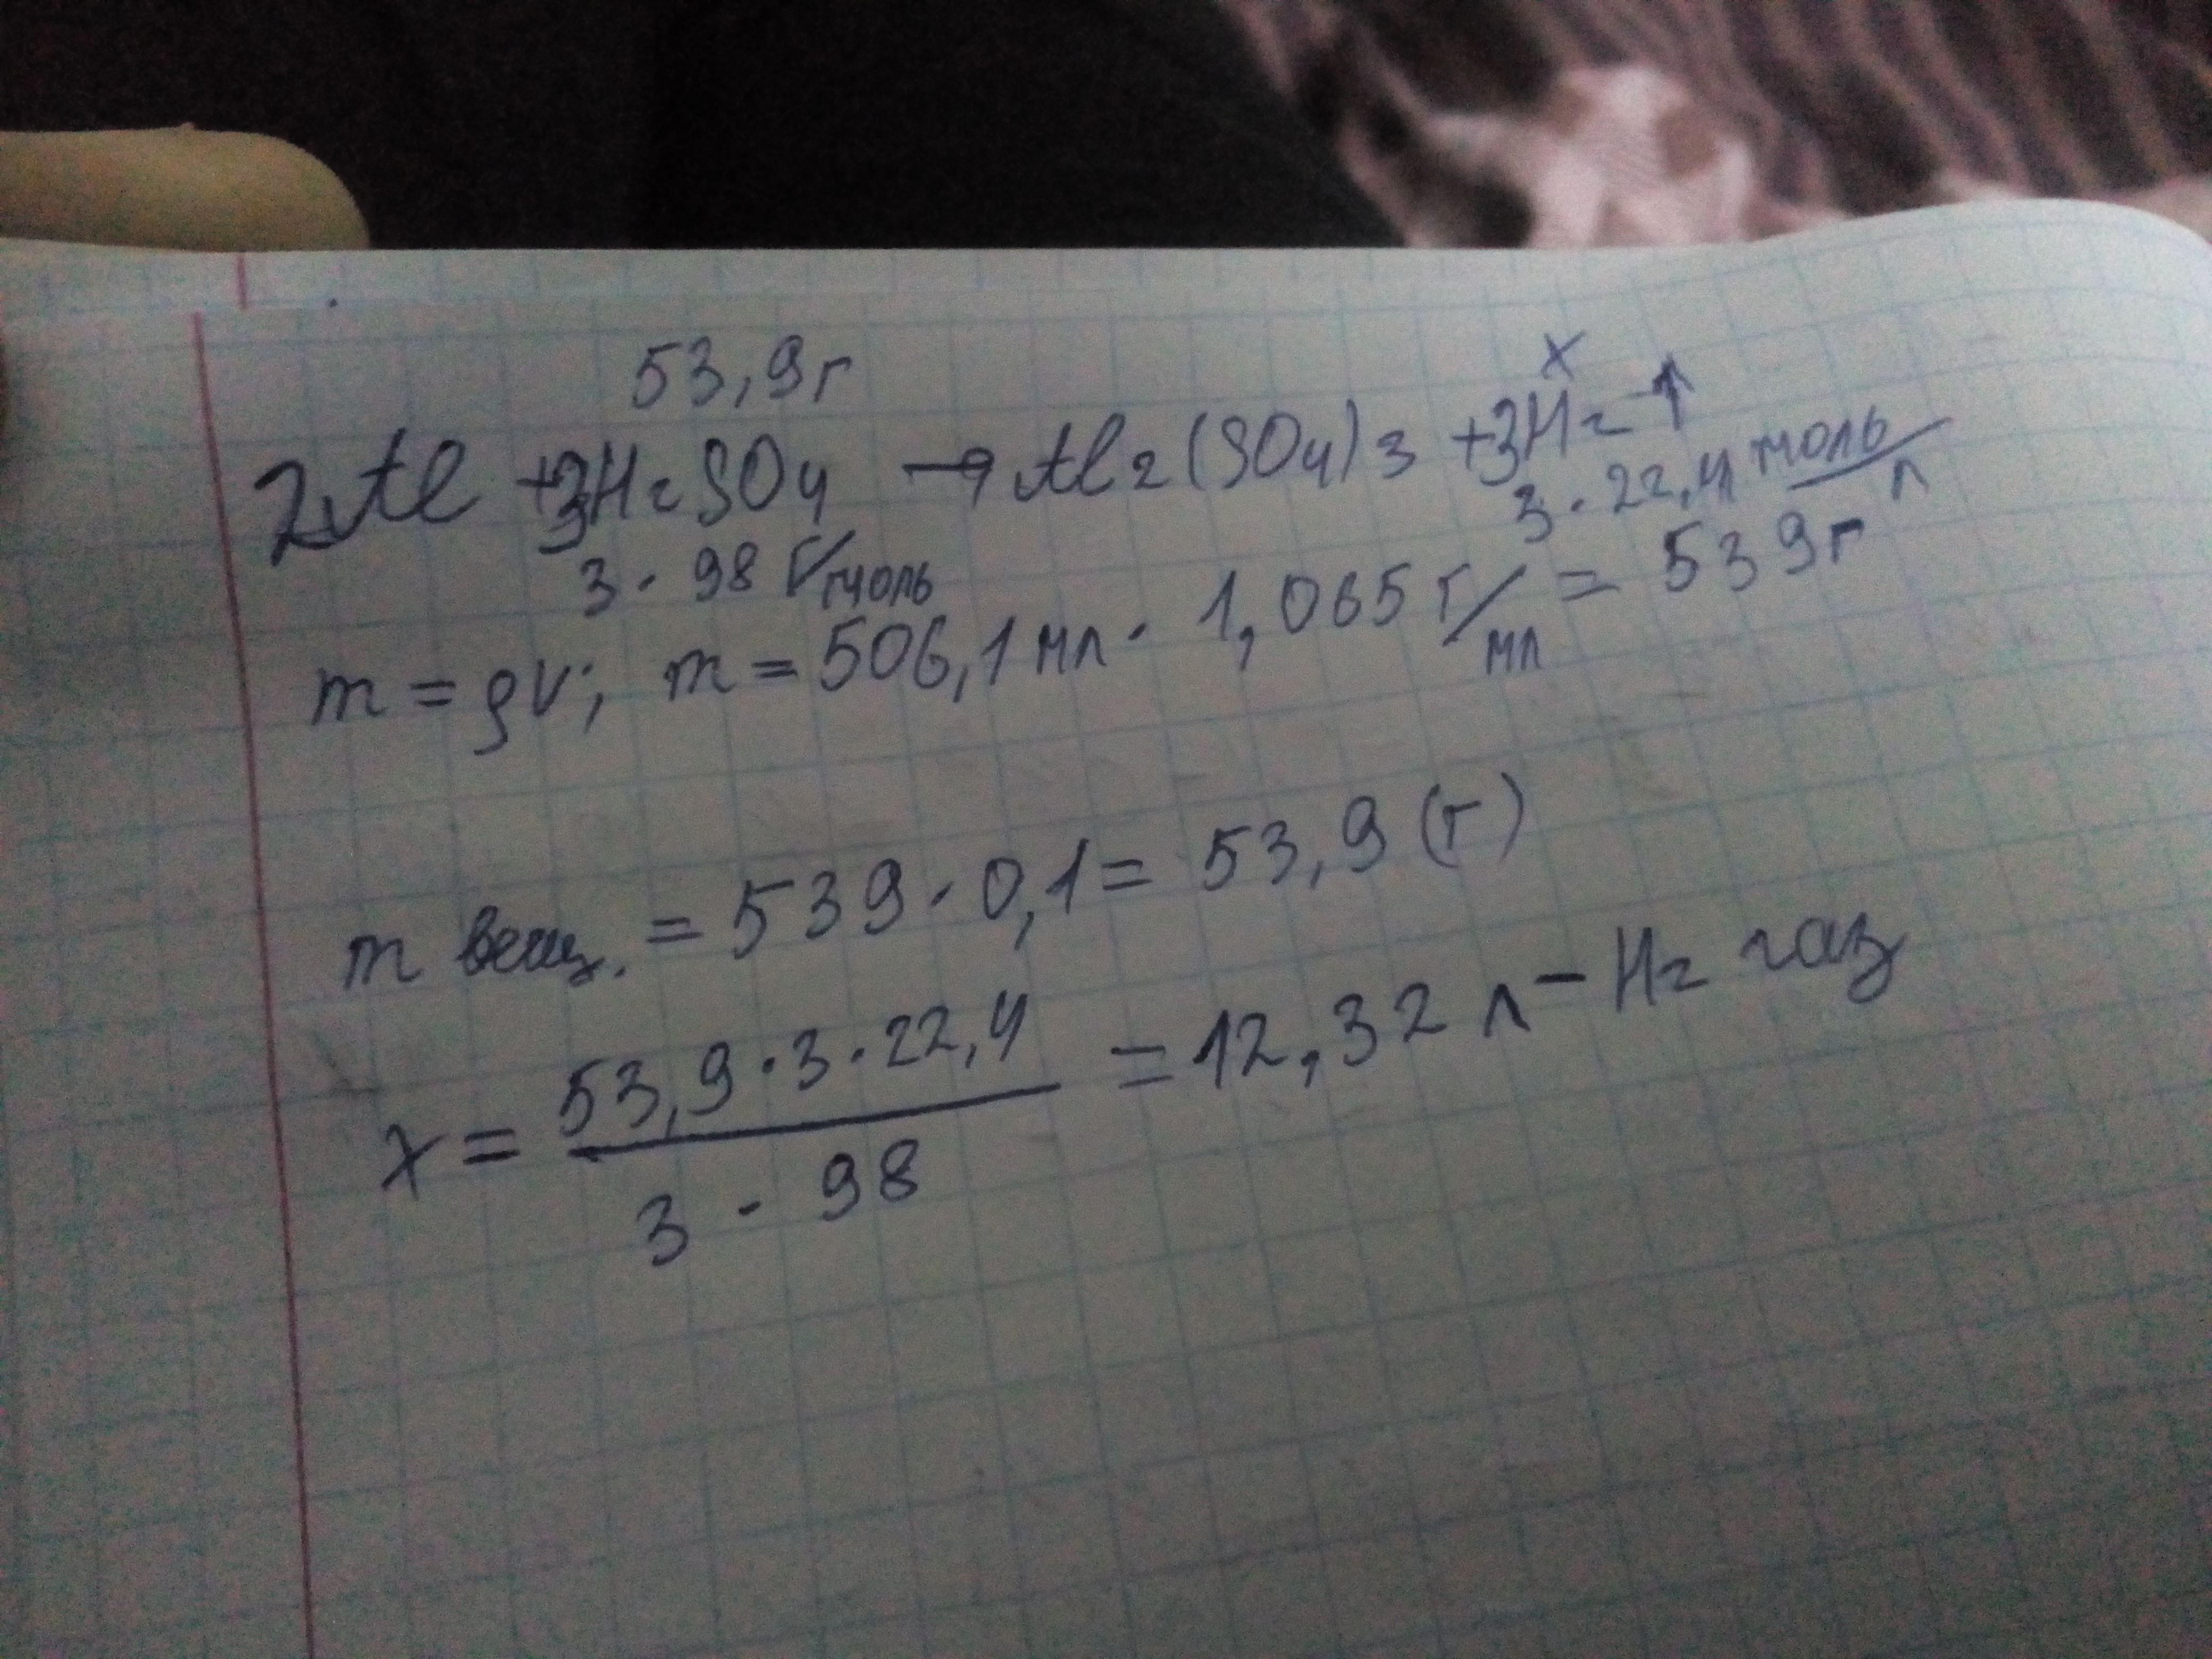 53,9г
x
2Al + 3H2SO4 → Al2(SO4)3 + 3H2↑
3 · 98 г/моль
3 · 22,4 моль/л
m = ρV; m = 506,1 мл · 1,065 г/мл = 539г
m вещ. = 539 · 0,1 = 53,9 (г)
x = 53,9 · 3 · 22,4 / 3 · 98 = 12,32 л – H2 газ